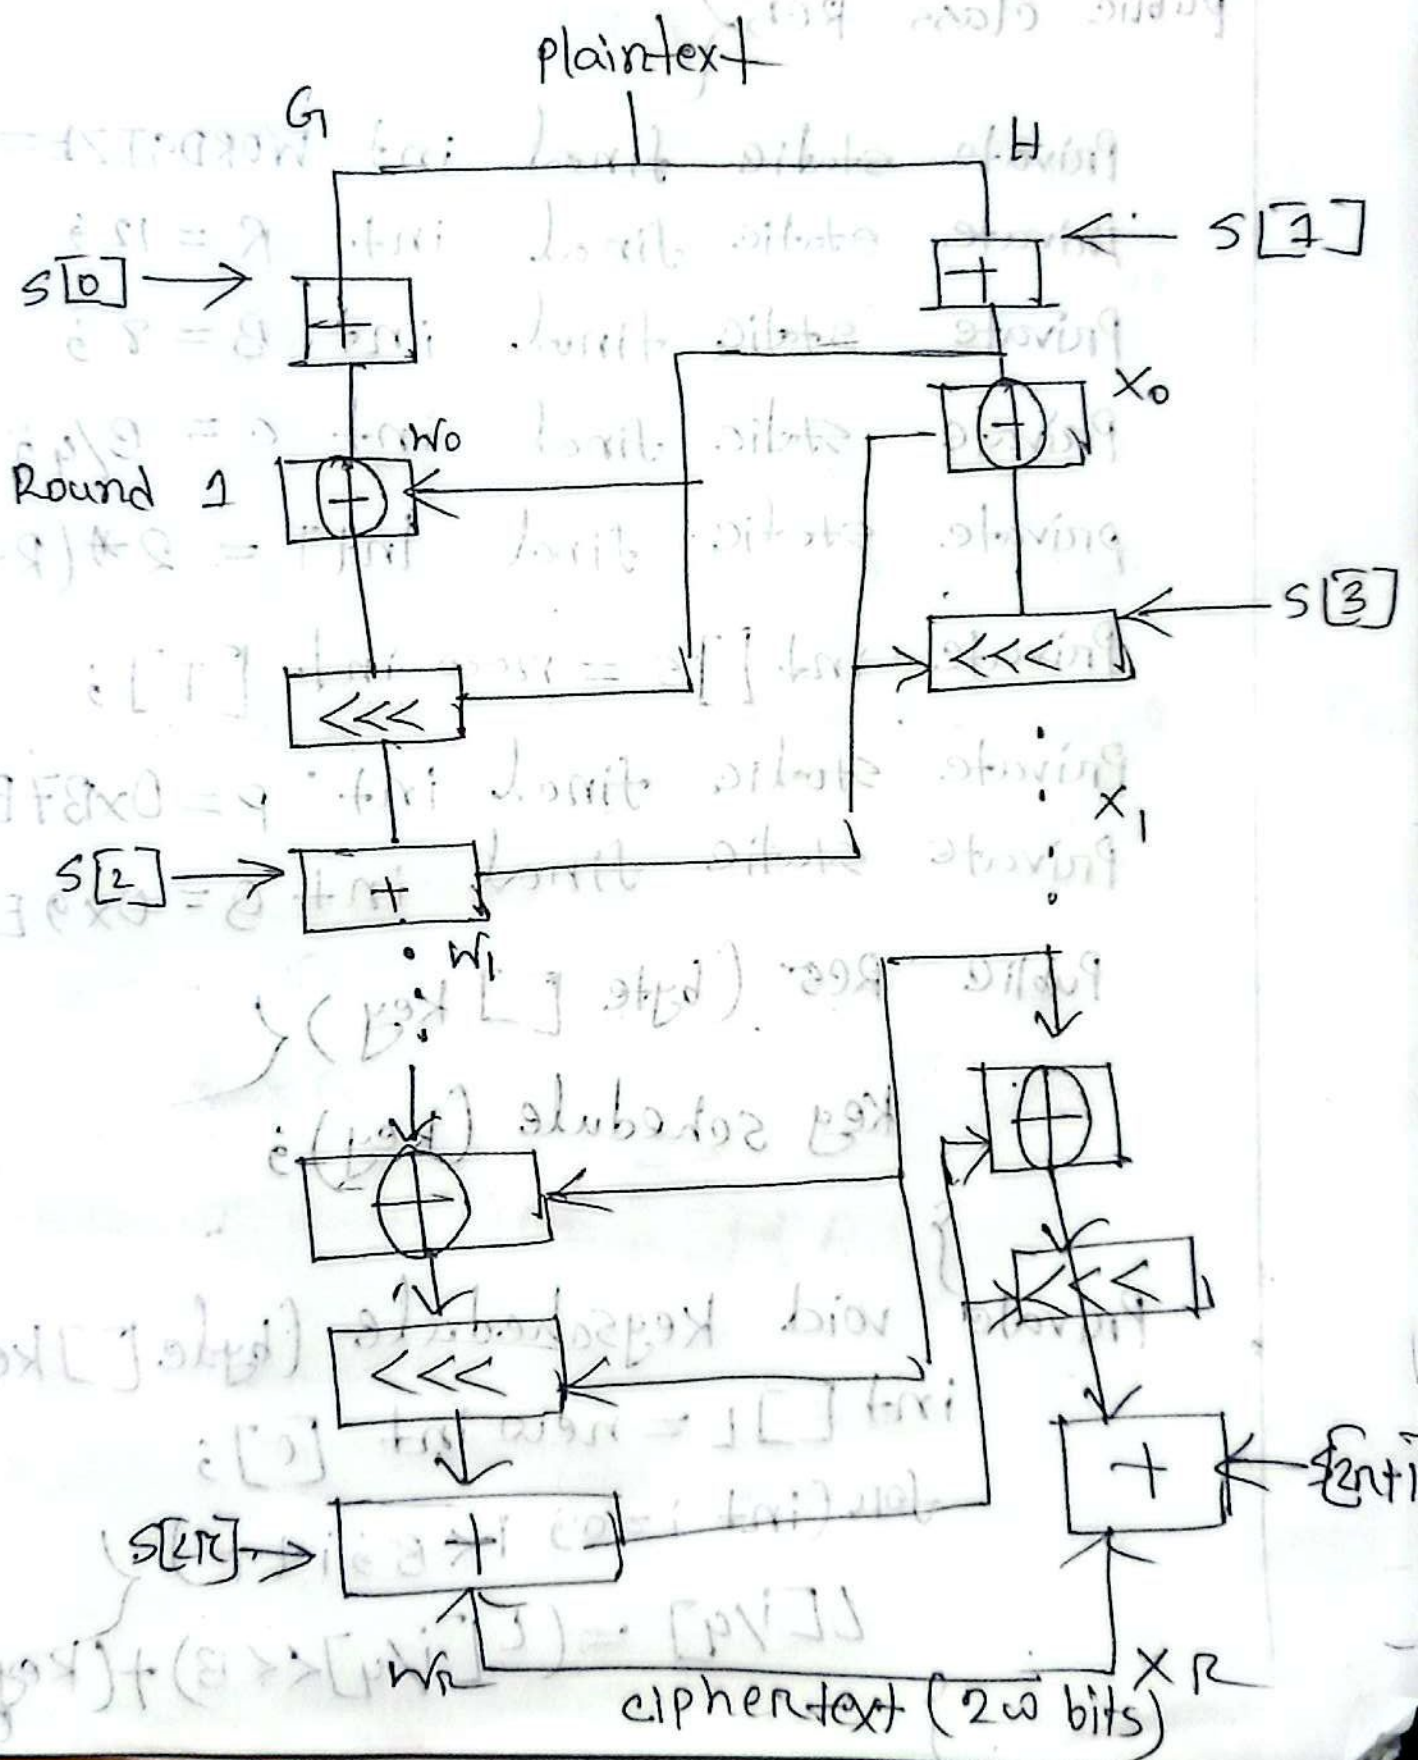 plaintext
G
H
S[0]
S[1]
+
+
X0
W0
Round 1
S[3]
<<<
<<<
X1
S[2]
+
W1
<<<
<<<
+
+
WR
XR
ciphertext (2w bits)